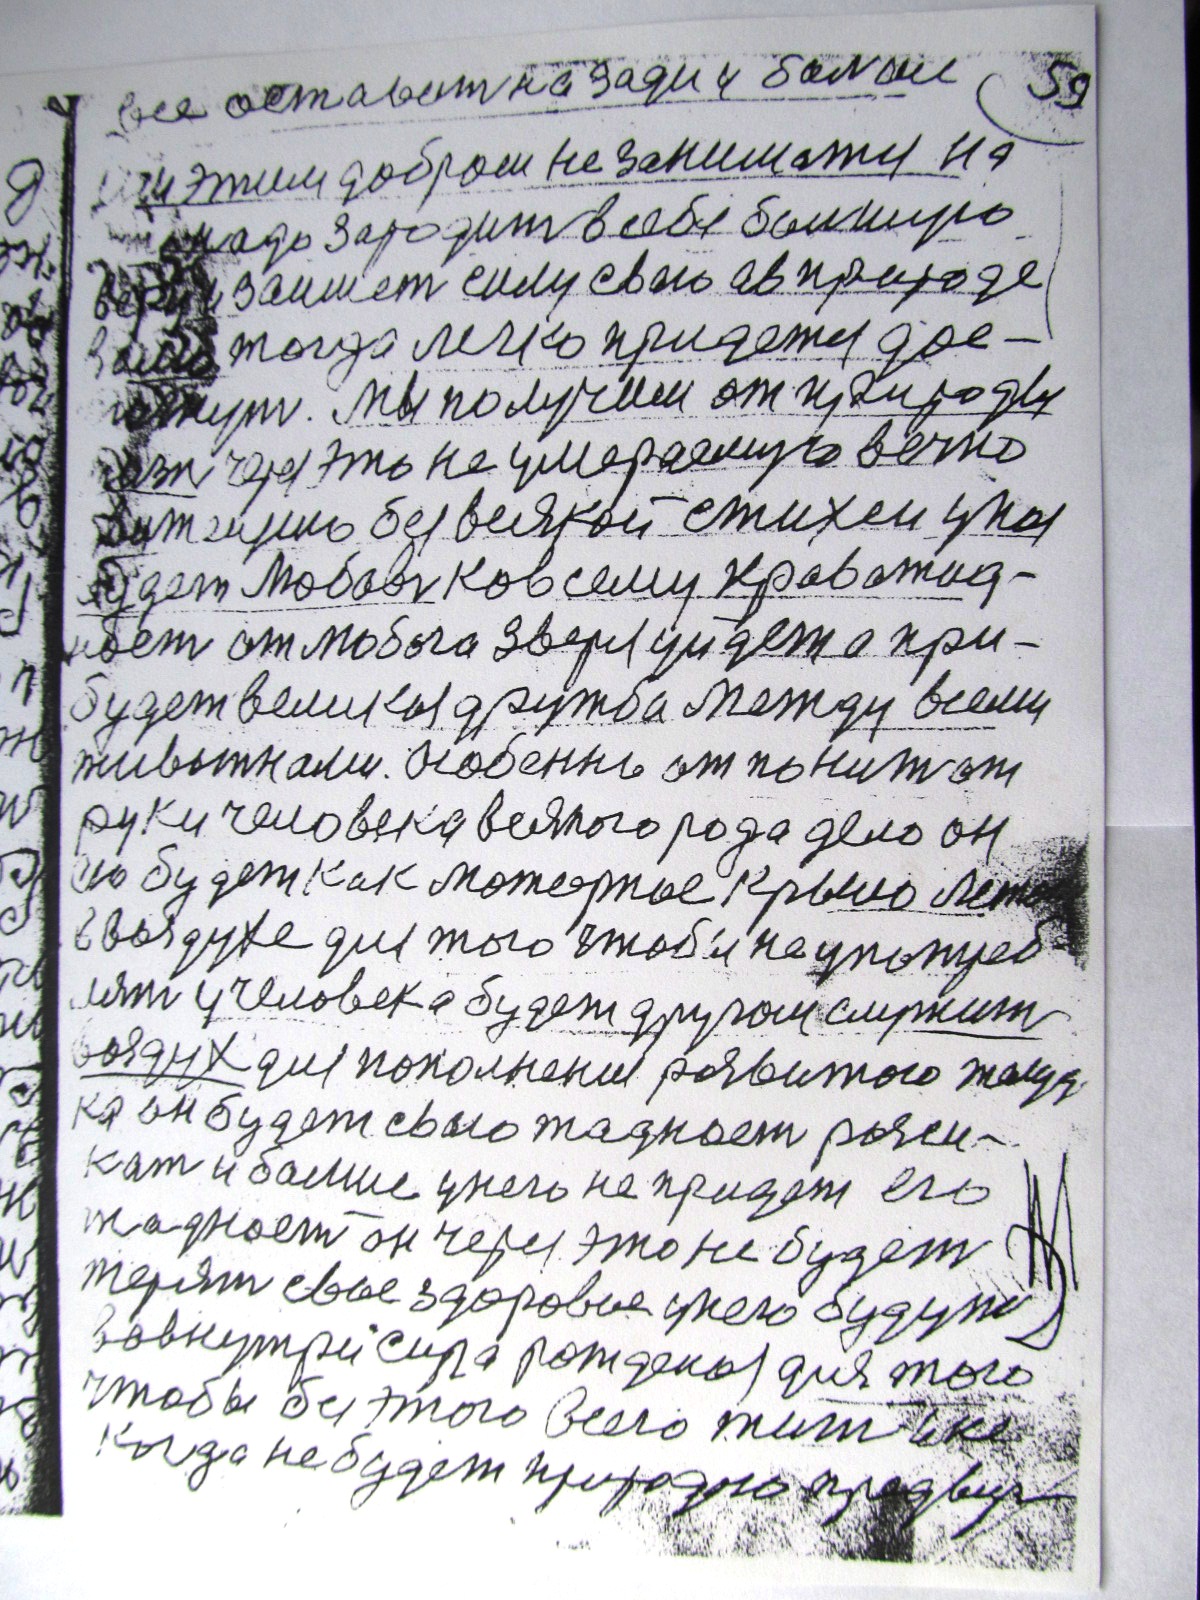 все оставит на зади и болше 59
этим добром не заниматя на
надо зародит в себе болшую
веру и займет силу свою а в природе
тогда лечко придетя дос-
тигнут. Мы получим от природы
через это не умераемую вечно
бес всякой стихеи у ная
будет Любовь ко всему кровожад-
ност от любога зверя уйдет а при-
будет великая дружба между всеми
животнами. Особеннь отпонит от
руки человека всякого рода дело он
но будет как моторное крыло
в воздухе для того чтобы не употреб
лят и человека будет другом служит
воздух для пополнения розвитого желуд
ка он будет свою жадност розси-
кат и болше унего не придет его
жадност он через это не будет
терят свое здоровье унего будут
вовнутри сира рождена для того
чтобы бес этого всего жит ике
когда не будет природно